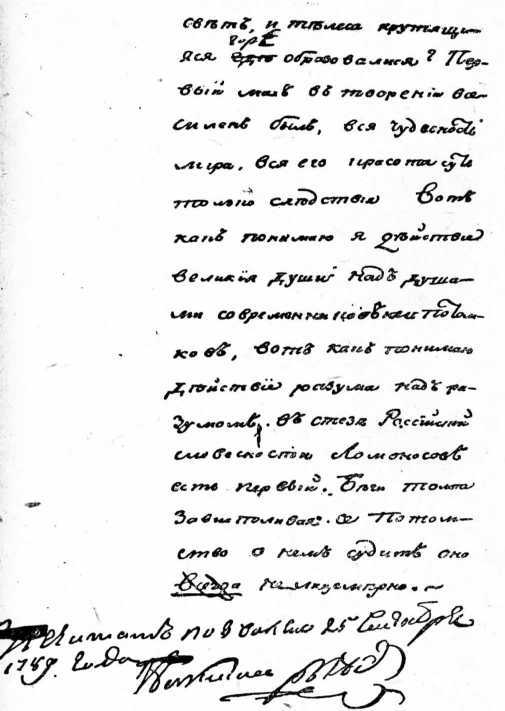 свѣтъ, и тѣлеса крутящи-
горѣ
яся образовалися? Пер-
вый махъ въ творенїи все-
силенъ былъ, вся чудесность
мира, вся его красота суть
только слѣдствїя Вотъ
какъ понимаю я дѣйствїе
великїя души надъ душа-
ми современниковъ или потом-
ковъ, вотъ какъ понимаю
дѣйствїе разума надъ ра-
зумомъ. въ стезѣ Россїйской
словесности Ломоносовъ
есть первый. Бѣги толпа
завистливая: се Потом-
ство о немъ судитъ оно
всегда нелицемѣрно. ~
по 25 Сентября
1789. года